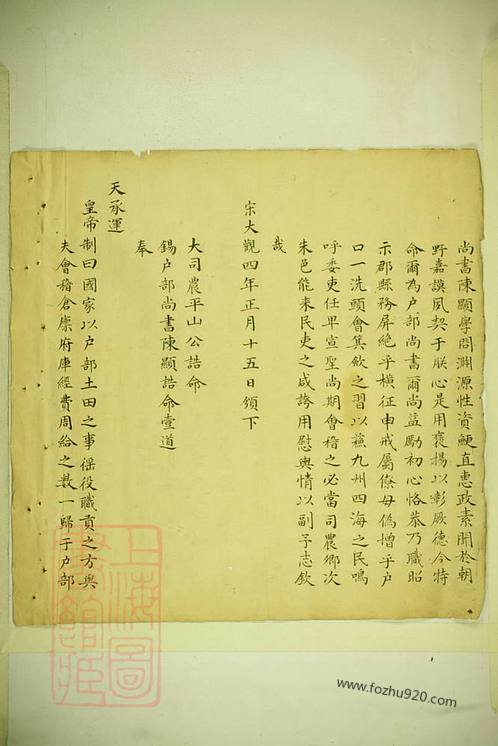 尚書陳顯學問淵源性資鯁直惠政素聞於朝
野嘉謨夙契于朕心是用褒揚以彰厥德今特
命爾為户部尚書爾尚益勵初心恪恭乃職昭
示郡縣務屏絶乎橫征申戒屬僚毋偽增乎户
口一洗頭會箕歛之習以蘓九州四海之民鳴
呼委吏任卑宣聖尚期會稽之必當司農鄉次
朱邑能来民吏之咸誇用慰輿情以副予志欽
哉
宋大觀四年正月十五日頒下
大司農平山公誥命
錫户部尚書陳顯誥命壹道
奉
天承運
皇帝制曰國家以户部土田之事徭役職貢之方與
夫會稽倉廪府庫經費周給之數一歸于户部
上海圖
書館藏
www.fozhu920.com